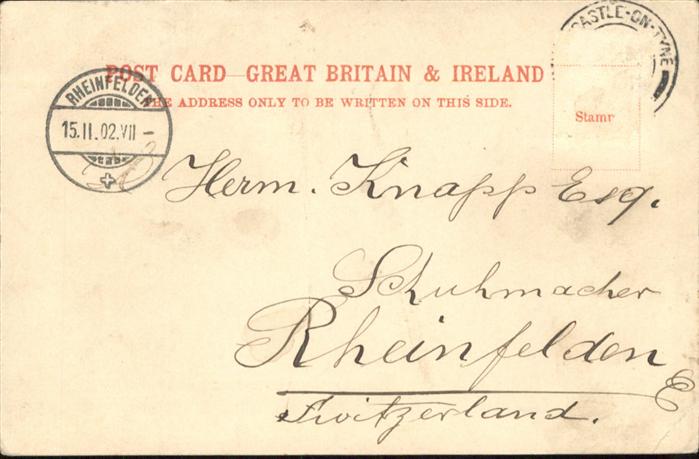 CASTLE-ON-TYNE
POST CARD—GREAT BRITAIN & IRELAND
THE ADDRESS ONLY TO BE WRITTEN ON THIS SIDE.
Stamp
RHEINFELDEN
15.II.02.VII –
Herm. Knapp Esq.
Schuhmacher
Rheinfelden
Switzerland.